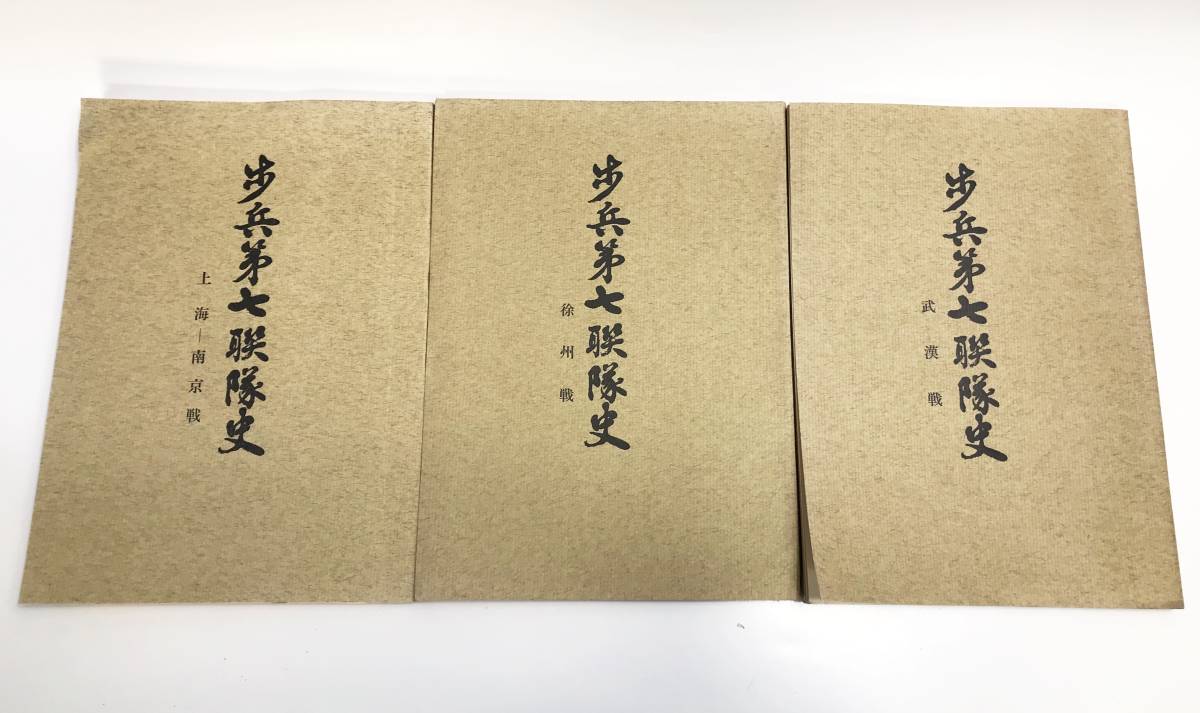 歩兵第七聯隊史
上海―南京戦
歩兵第七聯隊史
徐州戦
歩兵第七聯隊史
武漢戦